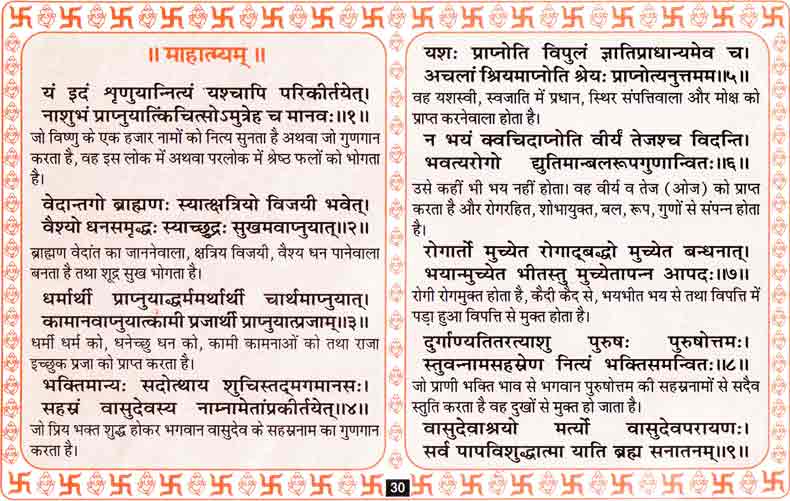 ॥ माहात्म्यम् ॥
यं इदं शृणुयान्नित्यं यश्चापि परिकीर्तयेत्।
नाशुभं प्राप्नुयात्किंचित्सोऽमुत्रेह च मानवः॥१॥
जो विष्णु के एक हजार नामों को नित्य सुनता है अथवा जो गुणगान
करता है, वह इस लोक में अथवा परलोक में श्रेष्ठ फलों को भोगता
है।
वेदान्तगो ब्राह्मणः स्यात्क्षत्रियो विजयी भवेत्।
वैश्यो धनसमृद्धः स्याच्छूद्रः सुखमवाप्नुयात्॥२॥
ब्राह्मण वेदांत का जाननेवाला, क्षत्रिय विजयी, वैश्य धन पानेवाला
बनता है तथा शूद्र सुख भोगता है।
धर्मार्थी प्राप्नुयाद्धर्ममर्थार्थी चार्थमाप्नुयात्।
कामानवाप्नुयात्कामी प्रजार्थी प्राप्नुयात्प्रजाम्॥३॥
धर्मी धर्म को, धनेच्छु धन को, कामी कामनाओं को तथा राजा
इच्छुक प्रजा को प्राप्त करता है।
भक्तिमान्यः सदोत्थाय शुचिस्तद्मगमानसः।
सहस्रं वासुदेवस्य नाम्नामेतांप्रकीर्तयेत्॥४॥
जो प्रिय भक्त शुद्ध होकर भगवान वासुदेव के सहस्रनाम का गुणगान
करता है।
यशः प्राप्नोति विपुलं ज्ञातिप्राधान्यमेव च।
अचलां श्रियमाप्नोति श्रेयः प्राप्नोत्यनुत्तमम॥५॥
वह यशस्वी, स्वजाति में प्रधान, स्थिर संपत्तिवाला और मोक्ष को
प्राप्त करनेवाला होता है।
न भयं क्वचिदाप्नोति वीर्यं तेजश्च विदन्ति।
भवत्यरोगो द्युतिमान्बलरूपगुणान्वितः॥६॥
उसे कहीं भी भय नहीं होता। वह वीर्य व तेज (ओज) को प्राप्त
करता है और रोगरहित, शोभायुक्त, बल, रूप, गुणों से संपन्न होता
है।
रोगार्तो मुच्येत रोगाद्बद्धो मुच्येत बन्धनात्।
भयान्मुच्येत भीतस्तु मुच्येतापन्न आपदः॥७॥
रोगी रोगमुक्त होता है, कैदी कैद से, भयभीत भय से तथा विपत्ति में
पड़ा हुआ विपत्ति से मुक्त होता है।
दुर्गाण्यतितरत्याशु पुरुषः पुरुषोत्तमः।
स्तुवन्नामसहस्रेण नित्यं भक्तिसमन्वितः॥८॥
जो प्राणी भक्ति भाव से भगवान पुरुषोत्तम की सहस्रनामों से सदैव
स्तुति करता है वह दुखों से मुक्त हो जाता है।
वासुदेवाश्रयो मर्त्यो वासुदेवपरायणः।
सर्व पापविशुद्धात्मा याति ब्रह्म सनातनम्॥९॥
30